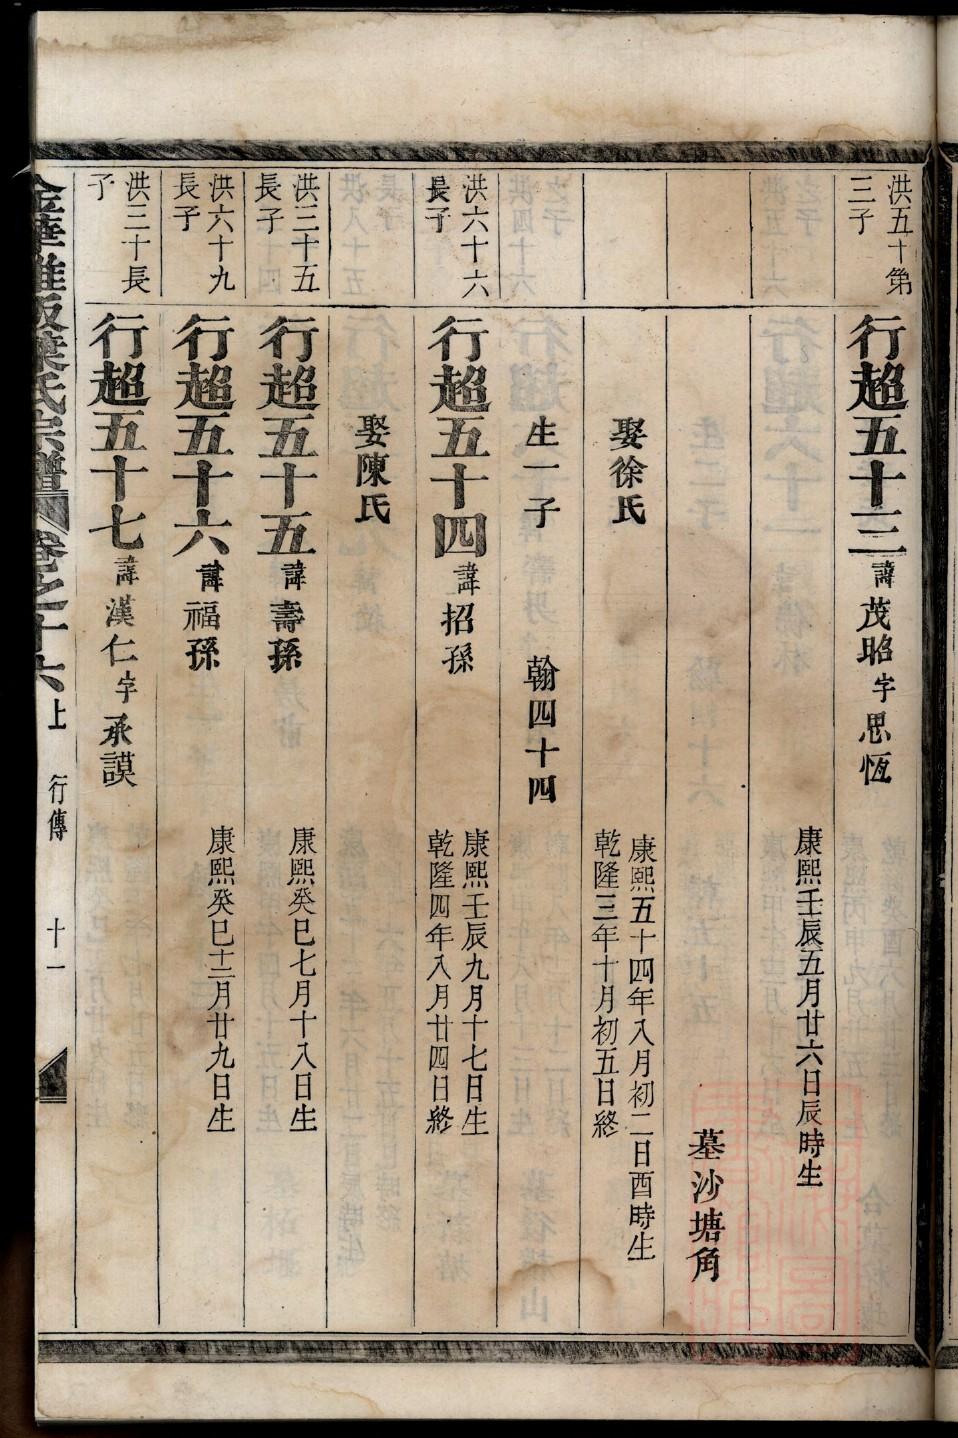 洪五十第
三子
行超五十三諱茂昭字思恆
康熙壬辰五月廿六日辰時生
墓沙塘角
娶徐氏
康熙五十四年八月初二日酉時生
乾隆三年十月初五日終
生一子
翰四十四
洪六十六
長子
行超五十四諱招孫
康熙壬辰九月十七日生
乾隆四年八月廿四日終
娶陳氏
洪三十五
長子
行超五十五諱壽孫
康熙癸巳七月十八日生
洪六十九
長子
行超五十六諱福孫
康熙癸巳十二月廿九日生
洪三十長
子
行超五十七諱漢仁字承謨
葉氏宗譜 卷之十六上 行傳 十一